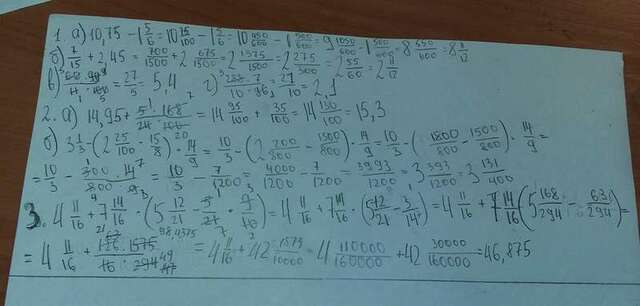 1. а) 10,75 - 1 5/6 = 10 75/100 - 1 5/6 = 10 450/600 - 1 500/600 = 9 1050/600 - 1 500/600 = 8 550/600 = 8 11/12
б) 7/15 + 2,45 = 700/1500 + 2 675/1500 = 2 1375/1500 = 2 275/300 = 2 55/60 = 2 11/12
в) = 27/5 = 5,4 г) = 27/10 = 2,1
2. а) 14,95 + 5 · 168/24 · 100 = 14 95/100 + 35/100 = 14 130/100 = 15,3
б) 3 1/3 - (2 25/100 - 15/8) · 14/9 = 10/3 - (2 200/800 - 1500/800) · 14/9 = 10/3 - (1800/800 - 1500/800) · 14/9 =
= 10/3 - 300/800 · 14/9 = 10/3 - 7/1200 = 4000/1200 - 7/1200 = 3993/1200 = 3 393/1200 = 3 131/400
3. 4 11/16 + 7 14/16 · (5 12/21 - 3/21 · 9/10) = 4 11/16 + 7 14/16 · (5 12/21 - 3/14) = 4 11/16 + 7 14/16 (5 168/294 - 63/294) =
= 4 11/16 + 126 · 1575/16 · 294 = 4 11/16 + 42 1575/10000 = 4 110000/160000 + 42 30000/160000 = 46,875